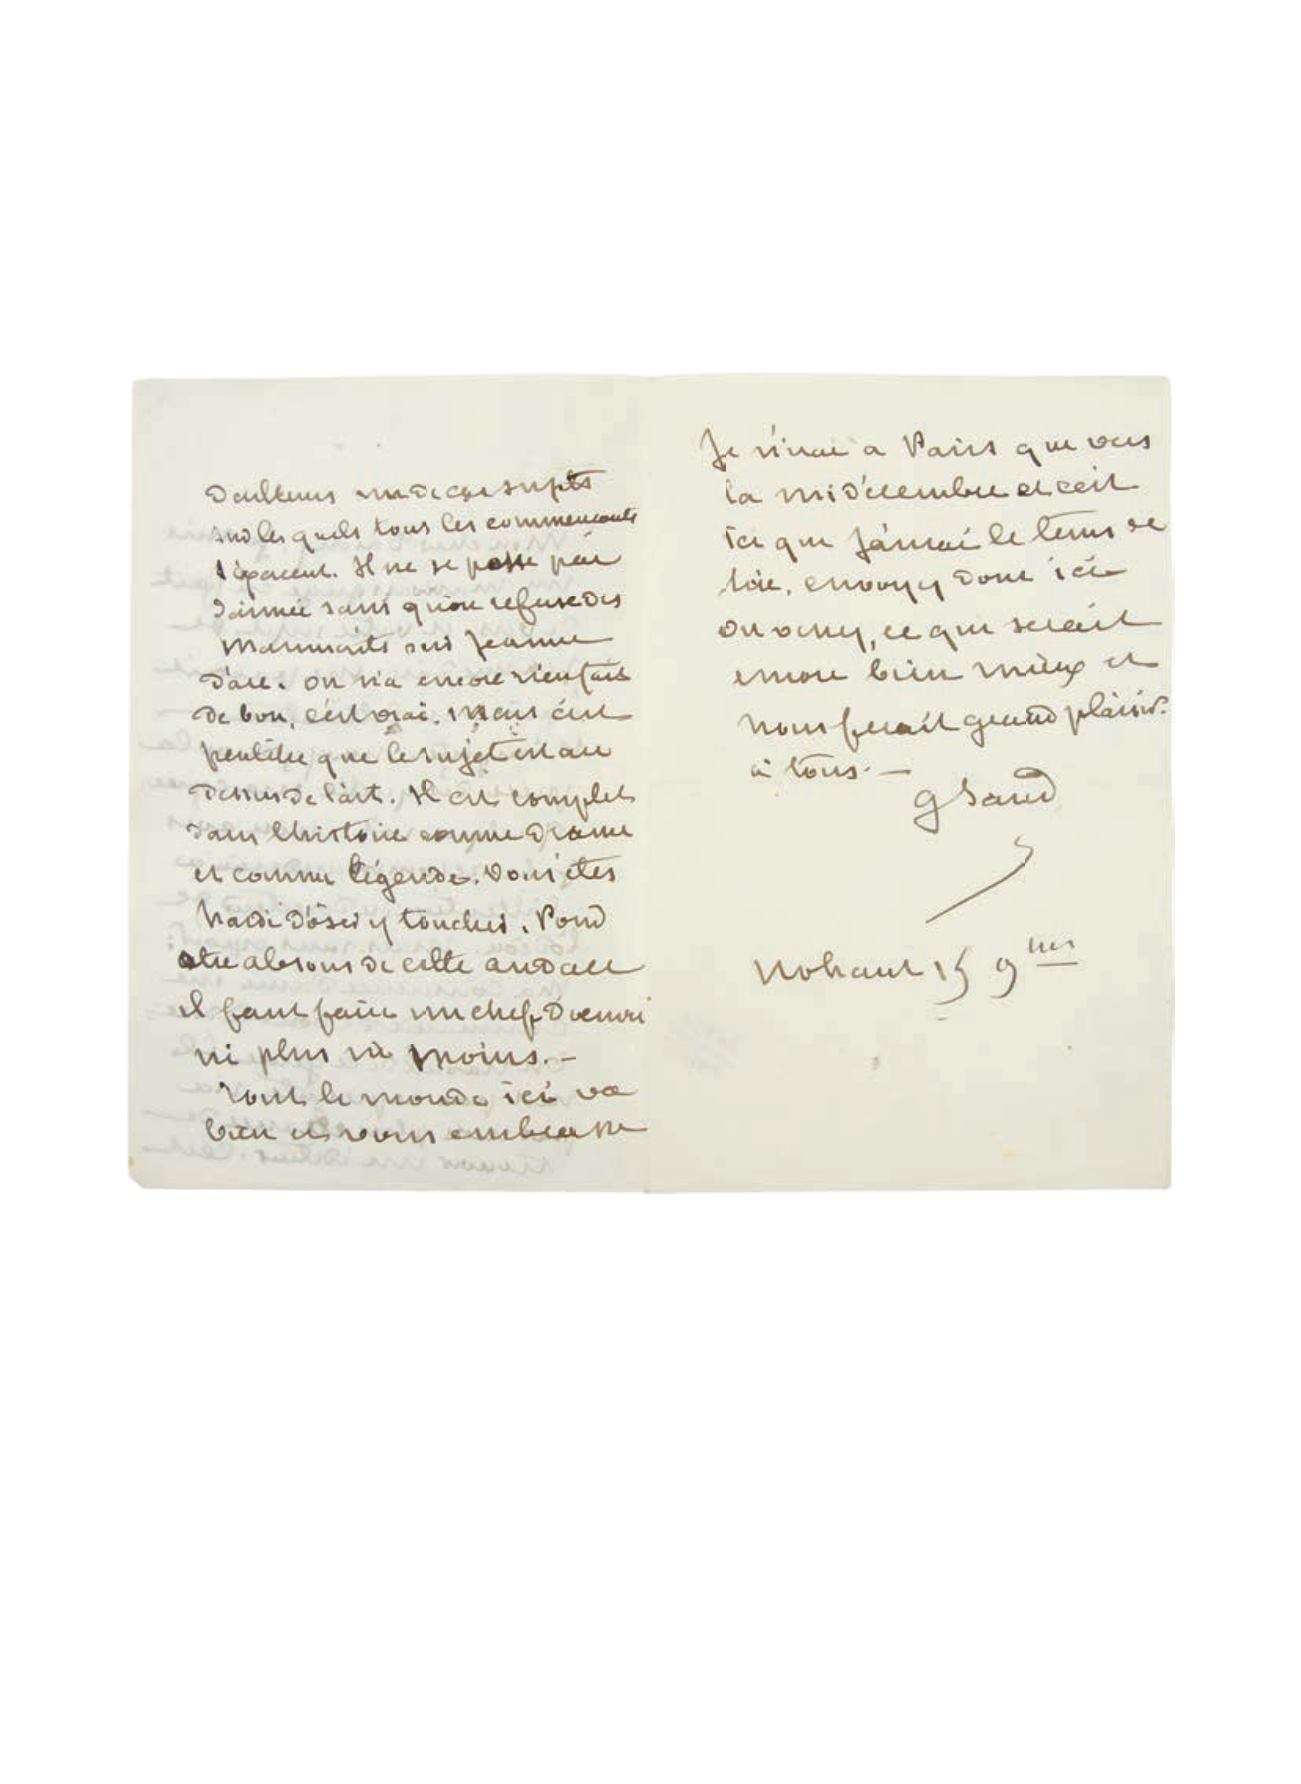 d'ailleurs un de ces sujets
sur les quels tous les commencants
s'exercent. Il ne se passe pas
d'année sans qu'on refuse des
manuscrits sur Jeanne
d'arc. on n'a encore rien fait
de bon, c'est vrai. mais c'est
peutêtre que le sujet est au
dessus de l'art. Il est complet
dans l'histoire comme drame
et comme légende. Vous êtes
hardi d'oser y toucher. Pour
etre absous de cette audace
il faut faire un chef d'oeuvre
ni plus ni moins. –
Tout le monde ici va
bien et vous embrasse
Je n'irai a Paris que vers
la mi décembre et c'est
ici que j'aurai le tems de
lire. envoyez donc ici
ou venez, ce qui serait
encore bien mieux et
nous ferait grand plaisir
à tous. –
G Sand
Nohant 15 9bre